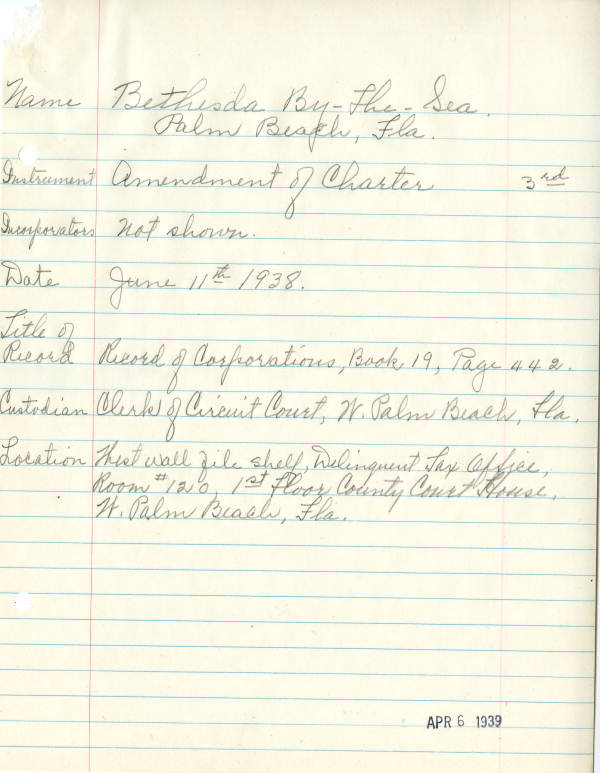 Name Bethesda By-The-Sea.
Palm Beach, Fla.
Instrument Amendment of Charter 3rd
Incorporators Not shown.
Date June 11th 1938.
Title of
Record Record of Corporations, Book 19, Page 442.
Custodian Clerk of Circuit Court, W. Palm Beach, Fla.
Location West wall file shelf, Delinquent Tax Office,
Room #120, 1st Floor County Court House,
W. Palm Beach, Fla.
APR 6 1939